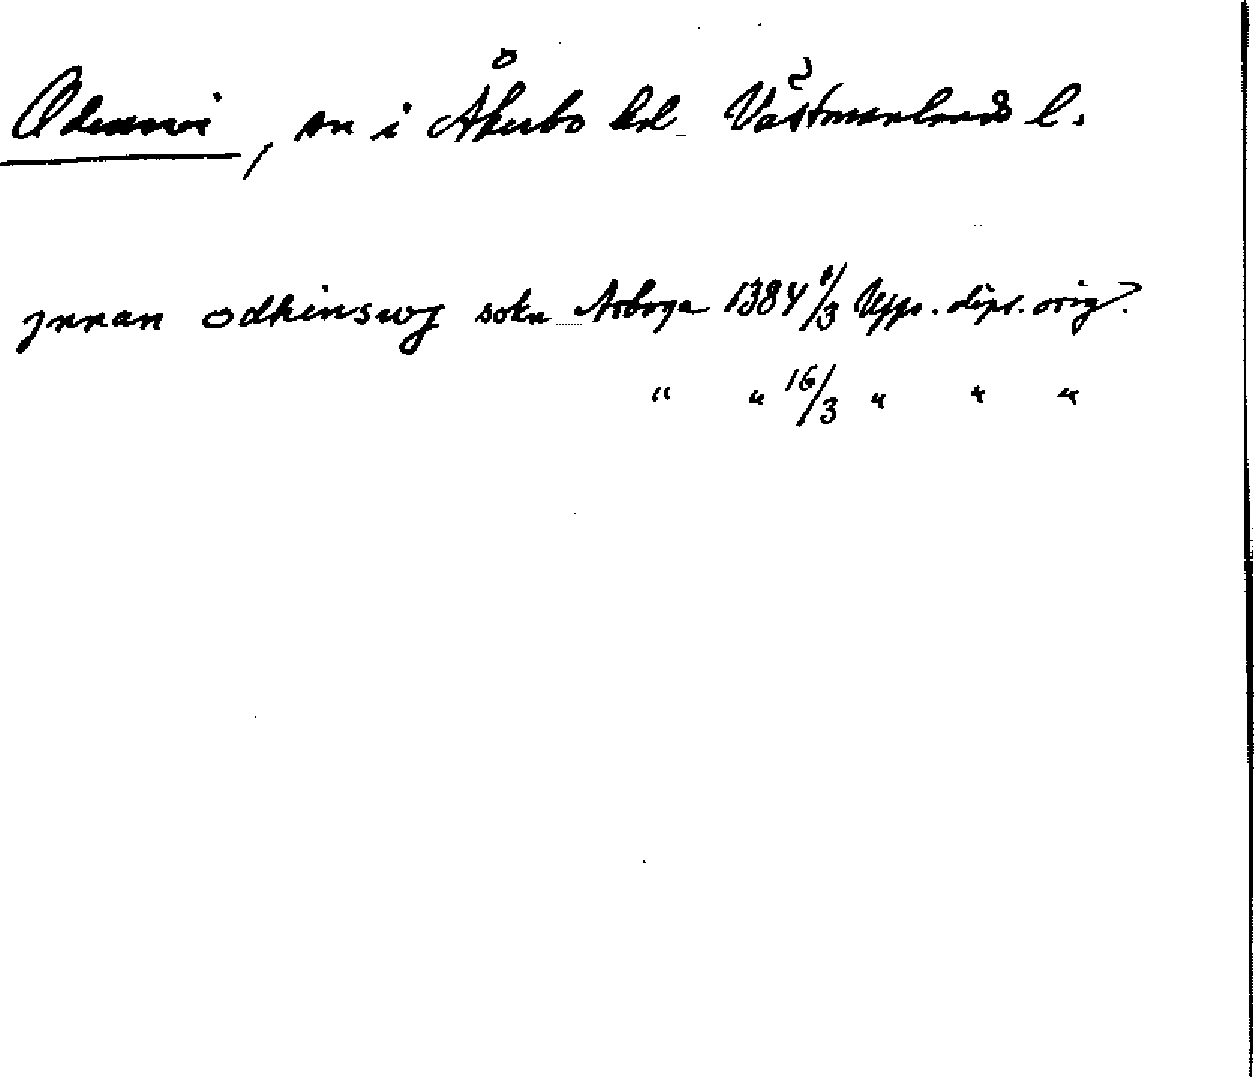 Odensvi, sn i Åkerbo hd Västmanlands l.
jnnan odhinswj sokn Arboga 1384 /3 Upps. dipl. orig.
" " 16/3 " " "